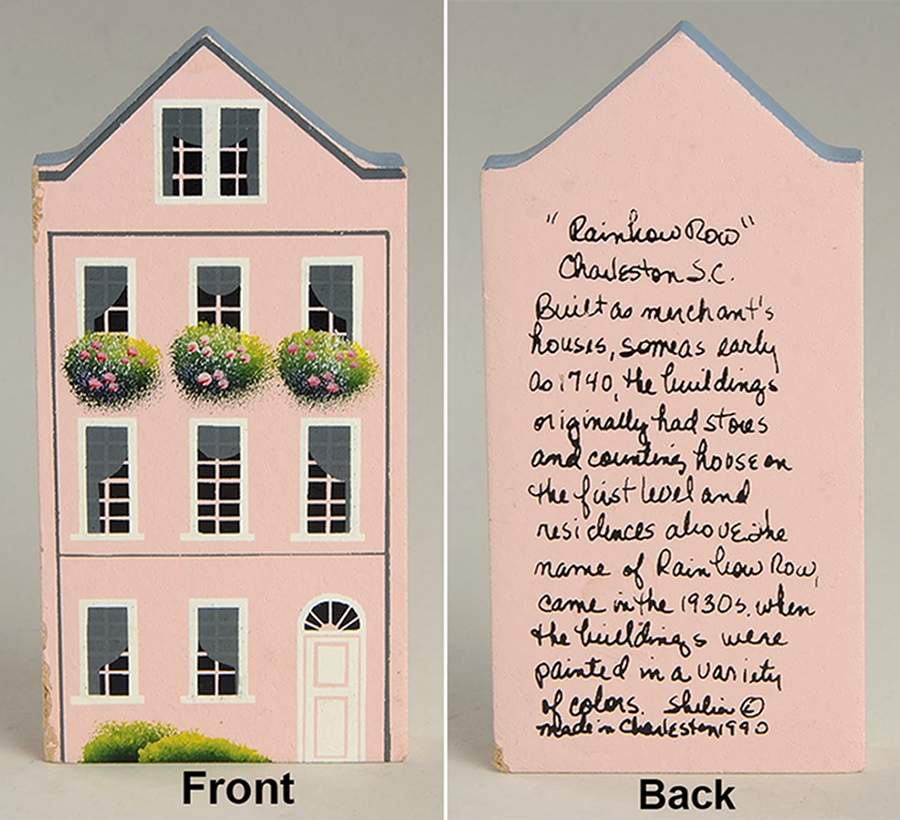 "Rainbow Row"
Charleston S.C.
Built as merchant's
houses, some as early
as 1740, the buildings
originally had stores
and counting house on
the first level and
residences above. the
name of Rainbow Row,
came in the 1930s. when
the buildings were
painted in a variety
of colors. Shelia ©
made in Charleston 1990
Front
Back